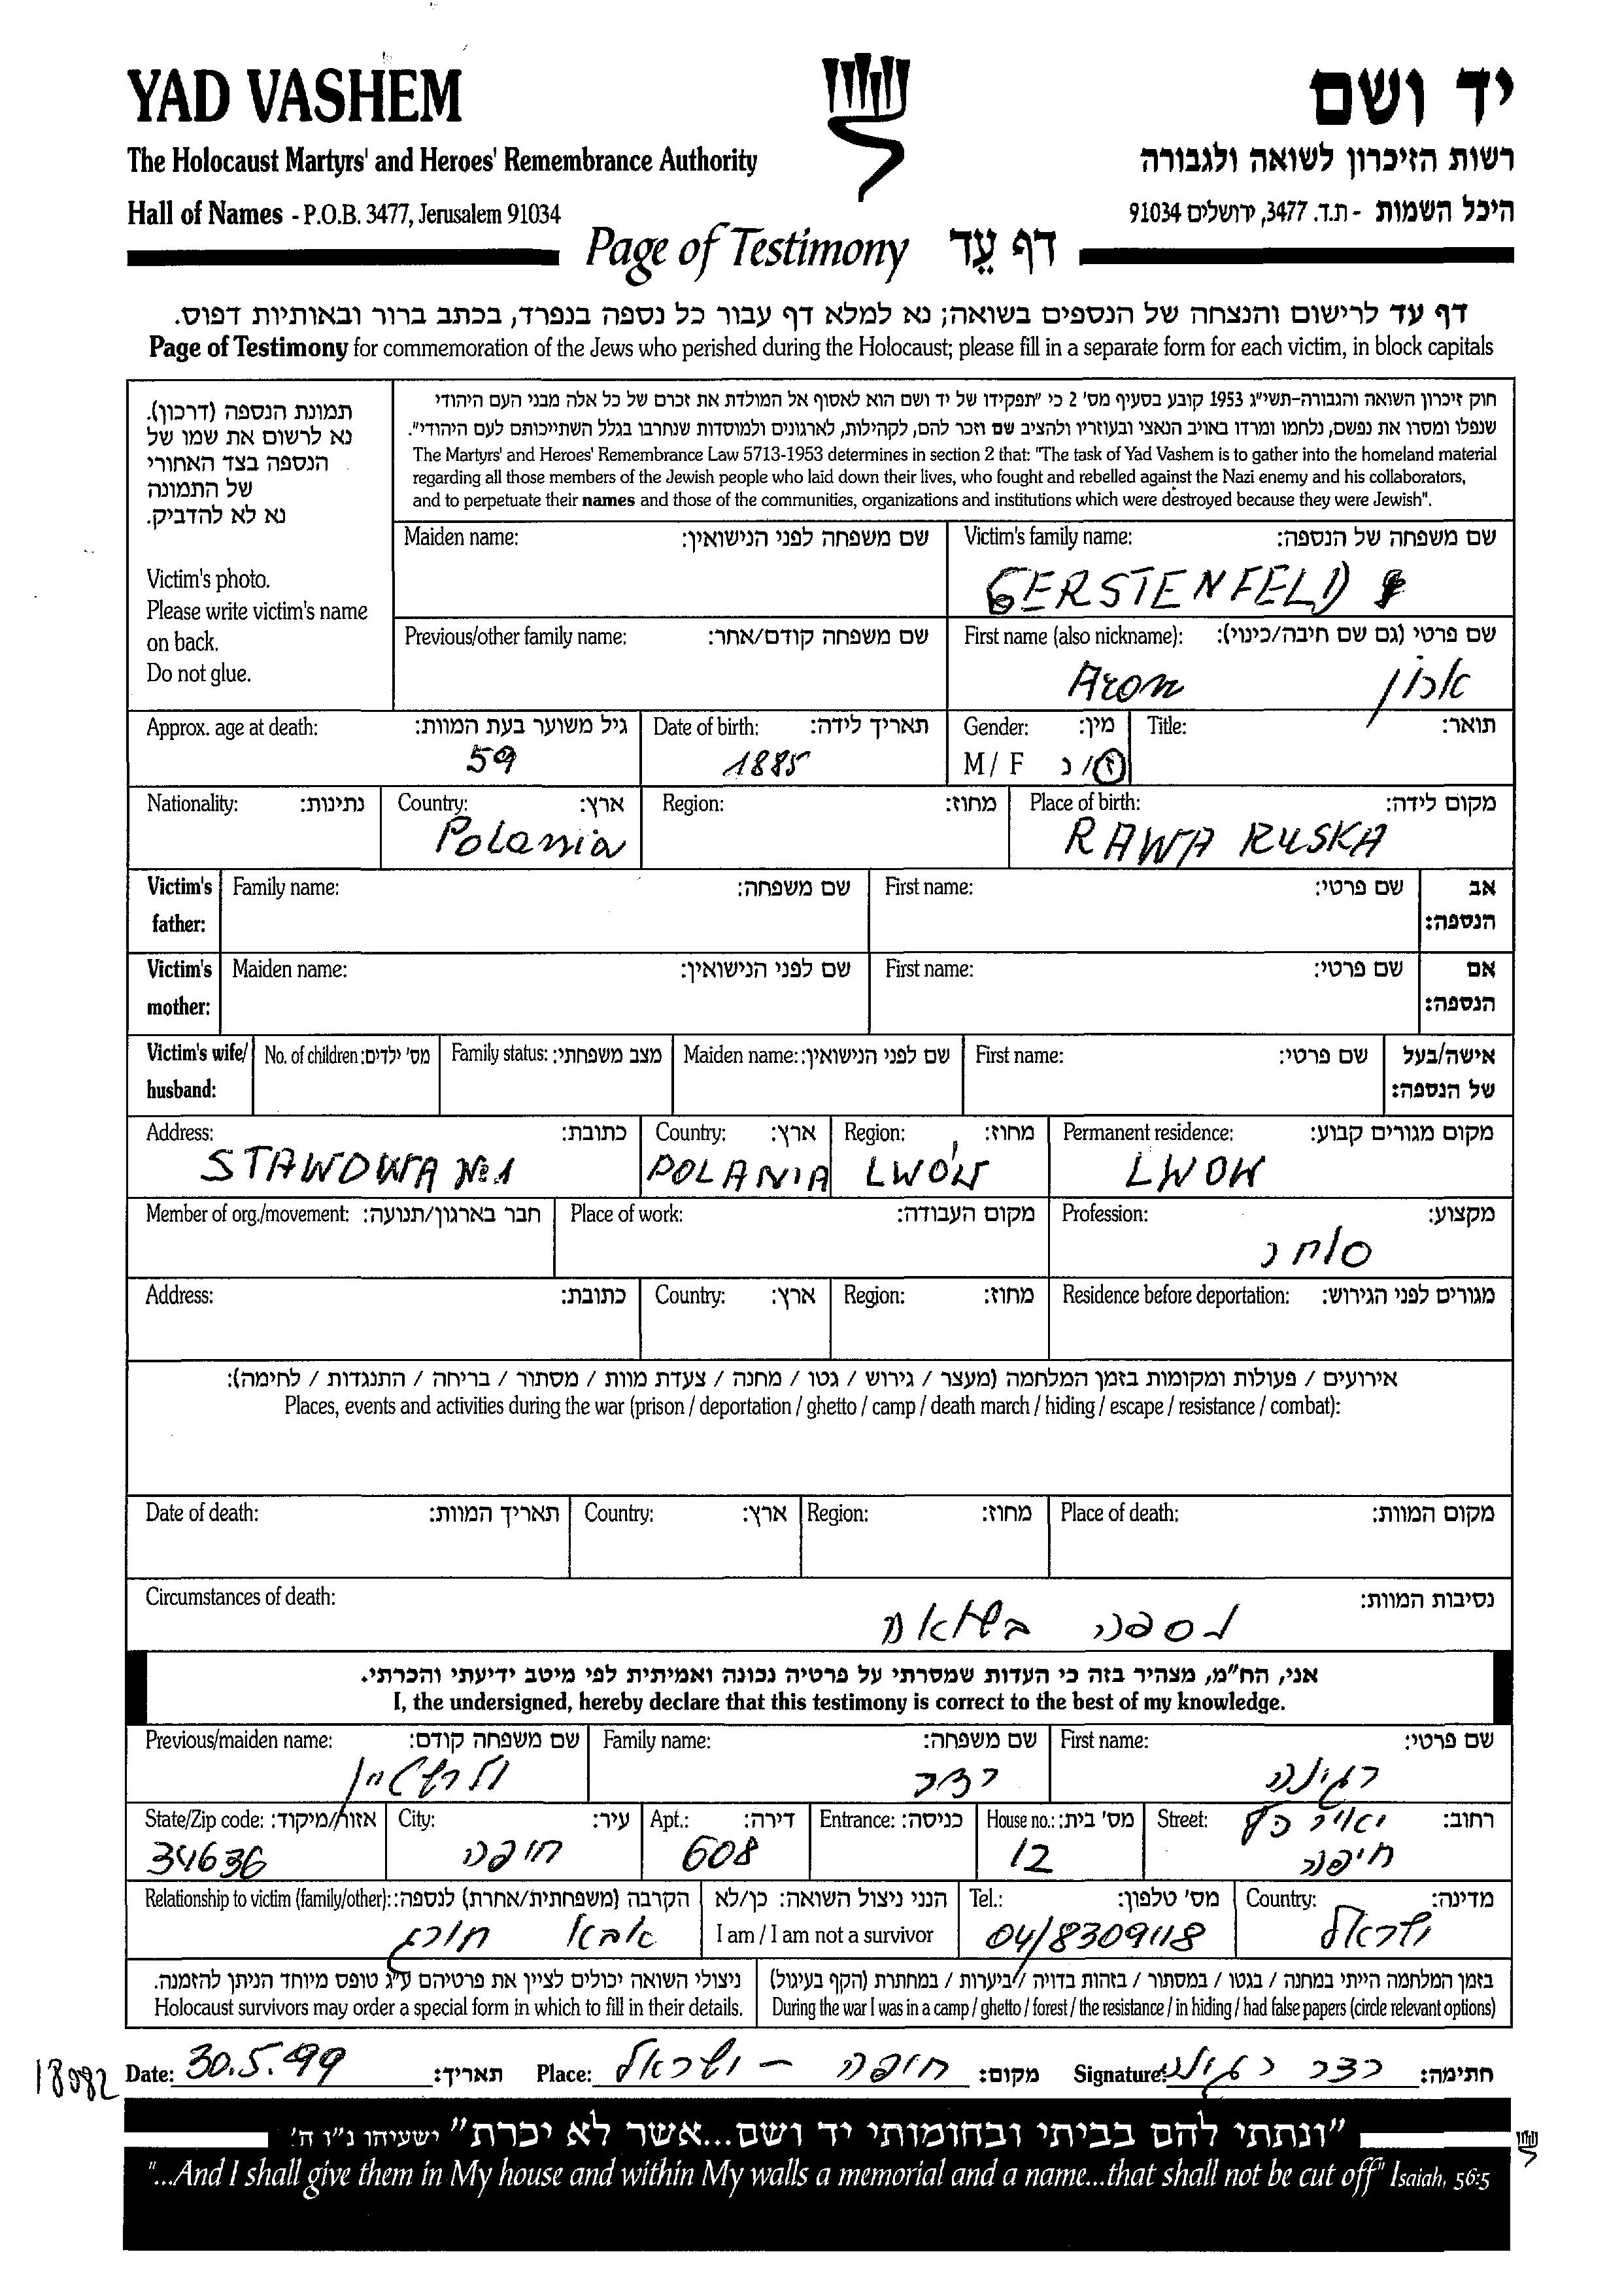 YAD VASHEM
יד ושם
The Holocaust Martyrs' and Heroes' Remembrance Authority
רשות הזיכרון לשואה ולגבורה
Hall of Names - P.O.B. 3477, Jerusalem 91034
היכל השמות - ת.ד. 3477, ירושלים 91034
Page of Testimony דף עֵד
דף עד לרישום והנצחה של הנספים בשואה; נא למלא דף עבור כל נספה בנפרד, בכתב ברור ובאותיות דפוס.
Page of Testimony for commemoration of the Jews who perished during the Holocaust; please fill in a separate form for each victim, in block capitals
תמונת הנספה (דרכון).
נא לרשום את שמו של
הנספה בצד האחורי
של התמונה
נא לא להדביק.
Victim's photo.
Please write victim's name
on back.
Do not glue.
חוק זיכרון השואה והגבורה-תשי"ג 1953 קובע בסעיף מס' 2 כי "תפקידו של יד ושם הוא לאסוף אל המולדת את זכרם של כל אלה מבני העם היהודי
שנפלו ומסרו את נפשם, נלחמו ומרדו באויב הנאצי ובעוזריו ולהציב שם וזכר להם, לקהילות, לארגונים ולמוסדות שנחרבו בגלל השתייכותם לעם היהודי".
The Martyrs' and Heroes' Remembrance Law 5713-1953 determines in section 2 that: "The task of Yad Vashem is to gather into the homeland material
regarding all those members of the Jewish people who laid down their lives, who fought and rebelled against the Nazi enemy and his collaborators,
and to perpetuate their names and those of the communities, organizations and institutions which were destroyed because they were Jewish".
Maiden name: שם משפחה לפני הנישואין: Victim's family name: שם משפחה של הנספה:
GERSTENFELD
Previous/other family name: שם משפחה קודם/אחר: First name (also nickname): שם פרטי (גם שם חיבה/כינוי):
Aron אהרון
Approx. age at death: גיל משוער בעת המוות: Date of birth: תאריך לידה: Gender: מין: Title: תואר:
59 1885 M / F ז/נ
Nationality: נתינות: Country: ארץ: Region: מחוז: Place of birth: מקום לידה:
Polania RAWA RUSKA
Victim's father: Family name: שם משפחה: First name: שם פרטי: אב הנספה:
Victim's mother: Maiden name: שם לפני הנישואין: First name: שם פרטי: אם הנספה:
Victim's wife/ husband: No. of children: מס' ילדים: Family status: מצב משפחתי: Maiden name: שם לפני הנישואין: First name: שם פרטי: אישה/בעל של הנספה:
Address: כתובת: Country: ארץ: Region: מחוז: Permanent residence: מקום מגורים קבוע:
STAWOWA № 1 POLANIA LWÓW LWOW
Member of org./movement: חבר בארגון/תנועה: Place of work: מקום העבודה: Profession: מקצוע:
סוחר
Address: כתובת: Country: ארץ: Region: מחוז: Residence before deportation: מגורים לפני הגירוש:
אירועים / פעולות ומקומות בזמן המלחמה (מעצר / גירוש / גטו / מחנה / צעדת מוות / מסתור / בריחה / התנגדות / לחימה):
Places, events and activities during the war (prison / deportation / ghetto / camp / death march / hiding / escape / resistance / combat):
Date of death: תאריך המוות: Country: ארץ: Region: מחוז: Place of death: מקום המוות:
Circumstances of death: נסיבות המוות:
נספה בשואה
אני, הח"מ, מצהיר בזה כי העדות שמסרתי על פרטיה נכונה ואמיתית לפי מיטב ידיעתי והכרתי.
I, the undersigned, hereby declare that this testimony is correct to the best of my knowledge.
Previous/maiden name: שם משפחה קודם: Family name: שם משפחה: First name: שם פרטי:
רצר רגינה
State/Zip code: אזור/מיקוד: City: עיר: Apt.: דירה: Entrance: כניסה: House no.: מס' בית: Street: רחוב:
34636 חיפה 608 12 חיפה
Relationship to victim (family/other): הקרבה (משפחתית/אחרת) לנספה: הנני ניצול השואה: כן/לא Tel.: מס' טלפון: Country: מדינה:
אבא חורג I am / I am not a survivor 04/8309118 ישראל
ניצולי השואה יכולים לציין את פרטיהם ע"ג טופס מיוחד הניתן להזמנה.
Holocaust survivors may order a special form in which to fill in their details.
בזמן המלחמה הייתי במחנה / בגטו / במסתור / בזהות בדויה / ביערות / במחתרת (הקף בעיגול)
During the war I was in a camp / ghetto / forest / the resistance / in hiding / had false papers (circle relevant options)
18082 Date: 30.5.99 תאריך: Place: חיפה - ישראל מקום: Signature: רצר רגינה חתימה:
"ונתתי להם בביתי ובחומותי יד ושם...אשר לא יכרת" ישעיהו נ"ו ה'
"...And I shall give them in My house and within My walls a memorial and a name...that shall not be cut off" Isaiah, 56:5